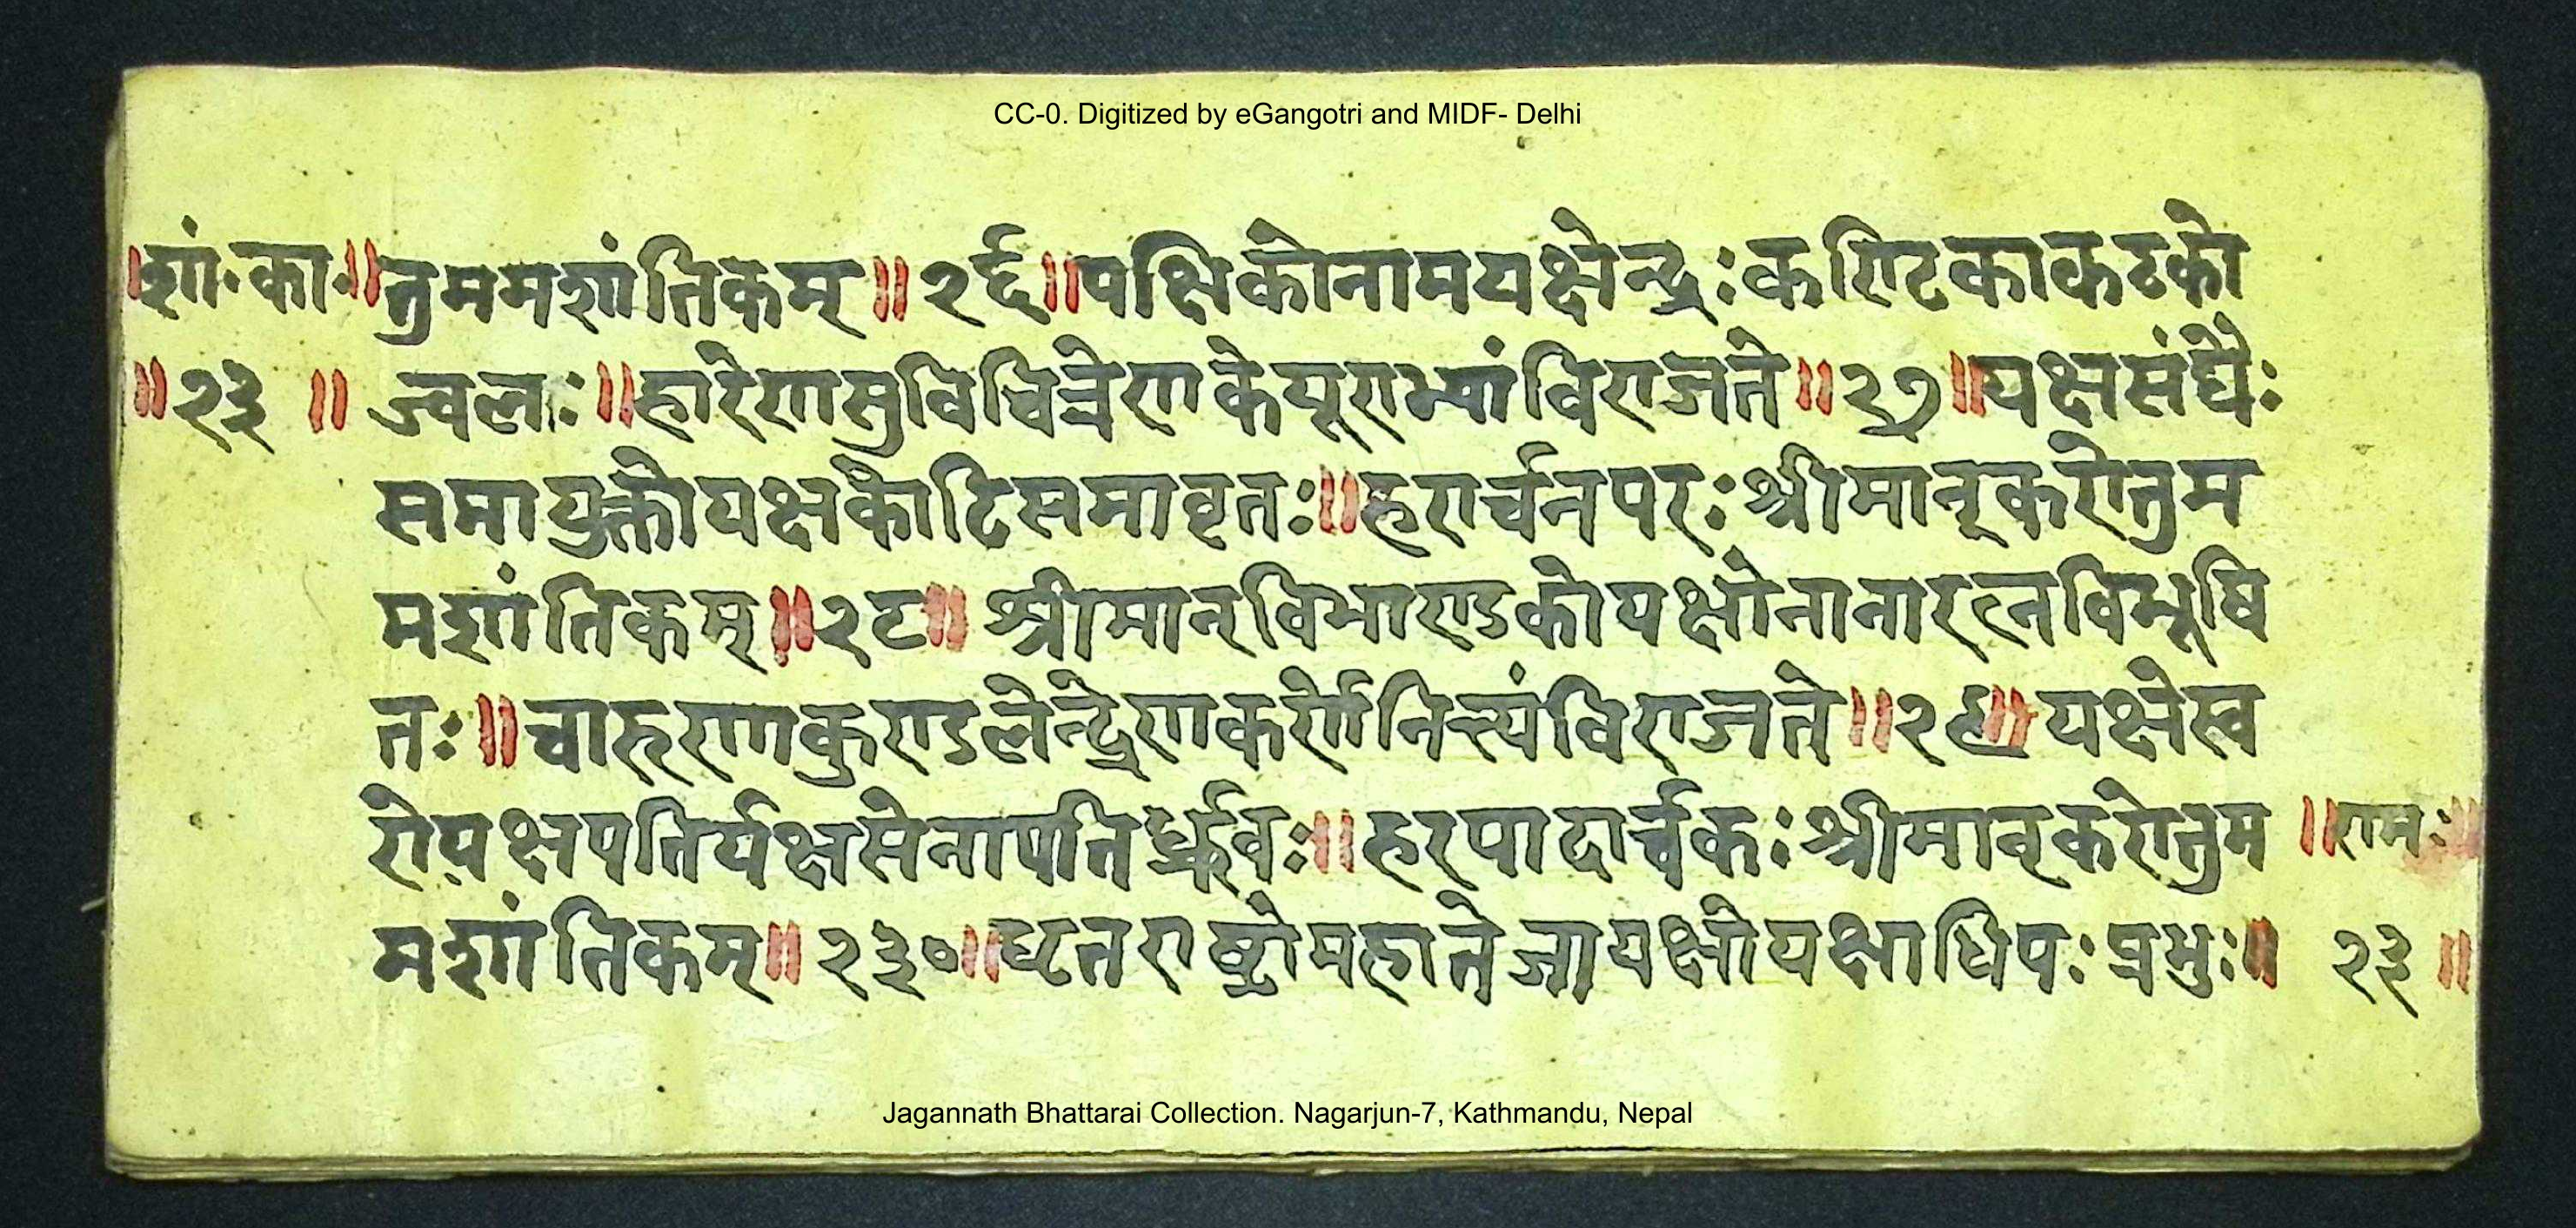 CC-0. Digitized by eGangotri and MIDF- Delhi
॥शां॰का॰॥तुममशांतिकम्॥२६॥पक्षिकोनामयक्षेन्द्रःकण्टिकाकटको
॥२३॥ज्वलः॥हारेणसुविचित्रेणकेयूराभ्यांविराजते॥२७॥यक्षसंघैः
समायुक्तोयक्षकोटिसमावृतः॥हरार्चनपरःश्रीमान्करोतुम
मशांतिकम्॥२८॥श्रीमान्विभाण्डकोयक्षोनानारत्नविभूषि
तः॥चारुणाकुण्डलेन्द्रेणकर्णेनित्यंविराजते॥२९॥यक्षेस्व
रोयक्षपतिर्यक्षसेनापतिर्ध्रुवः॥हरपादार्च्चकःश्रीमान्करोतुम ॥रामः॥
मशांतिकम्॥२३०॥धृतराष्ट्रोमहातेजायक्षोयक्षाधिपःप्रभुः॥ २३॥
Jagannath Bhattarai Collection. Nagarjun-7, Kathmandu, Nepal